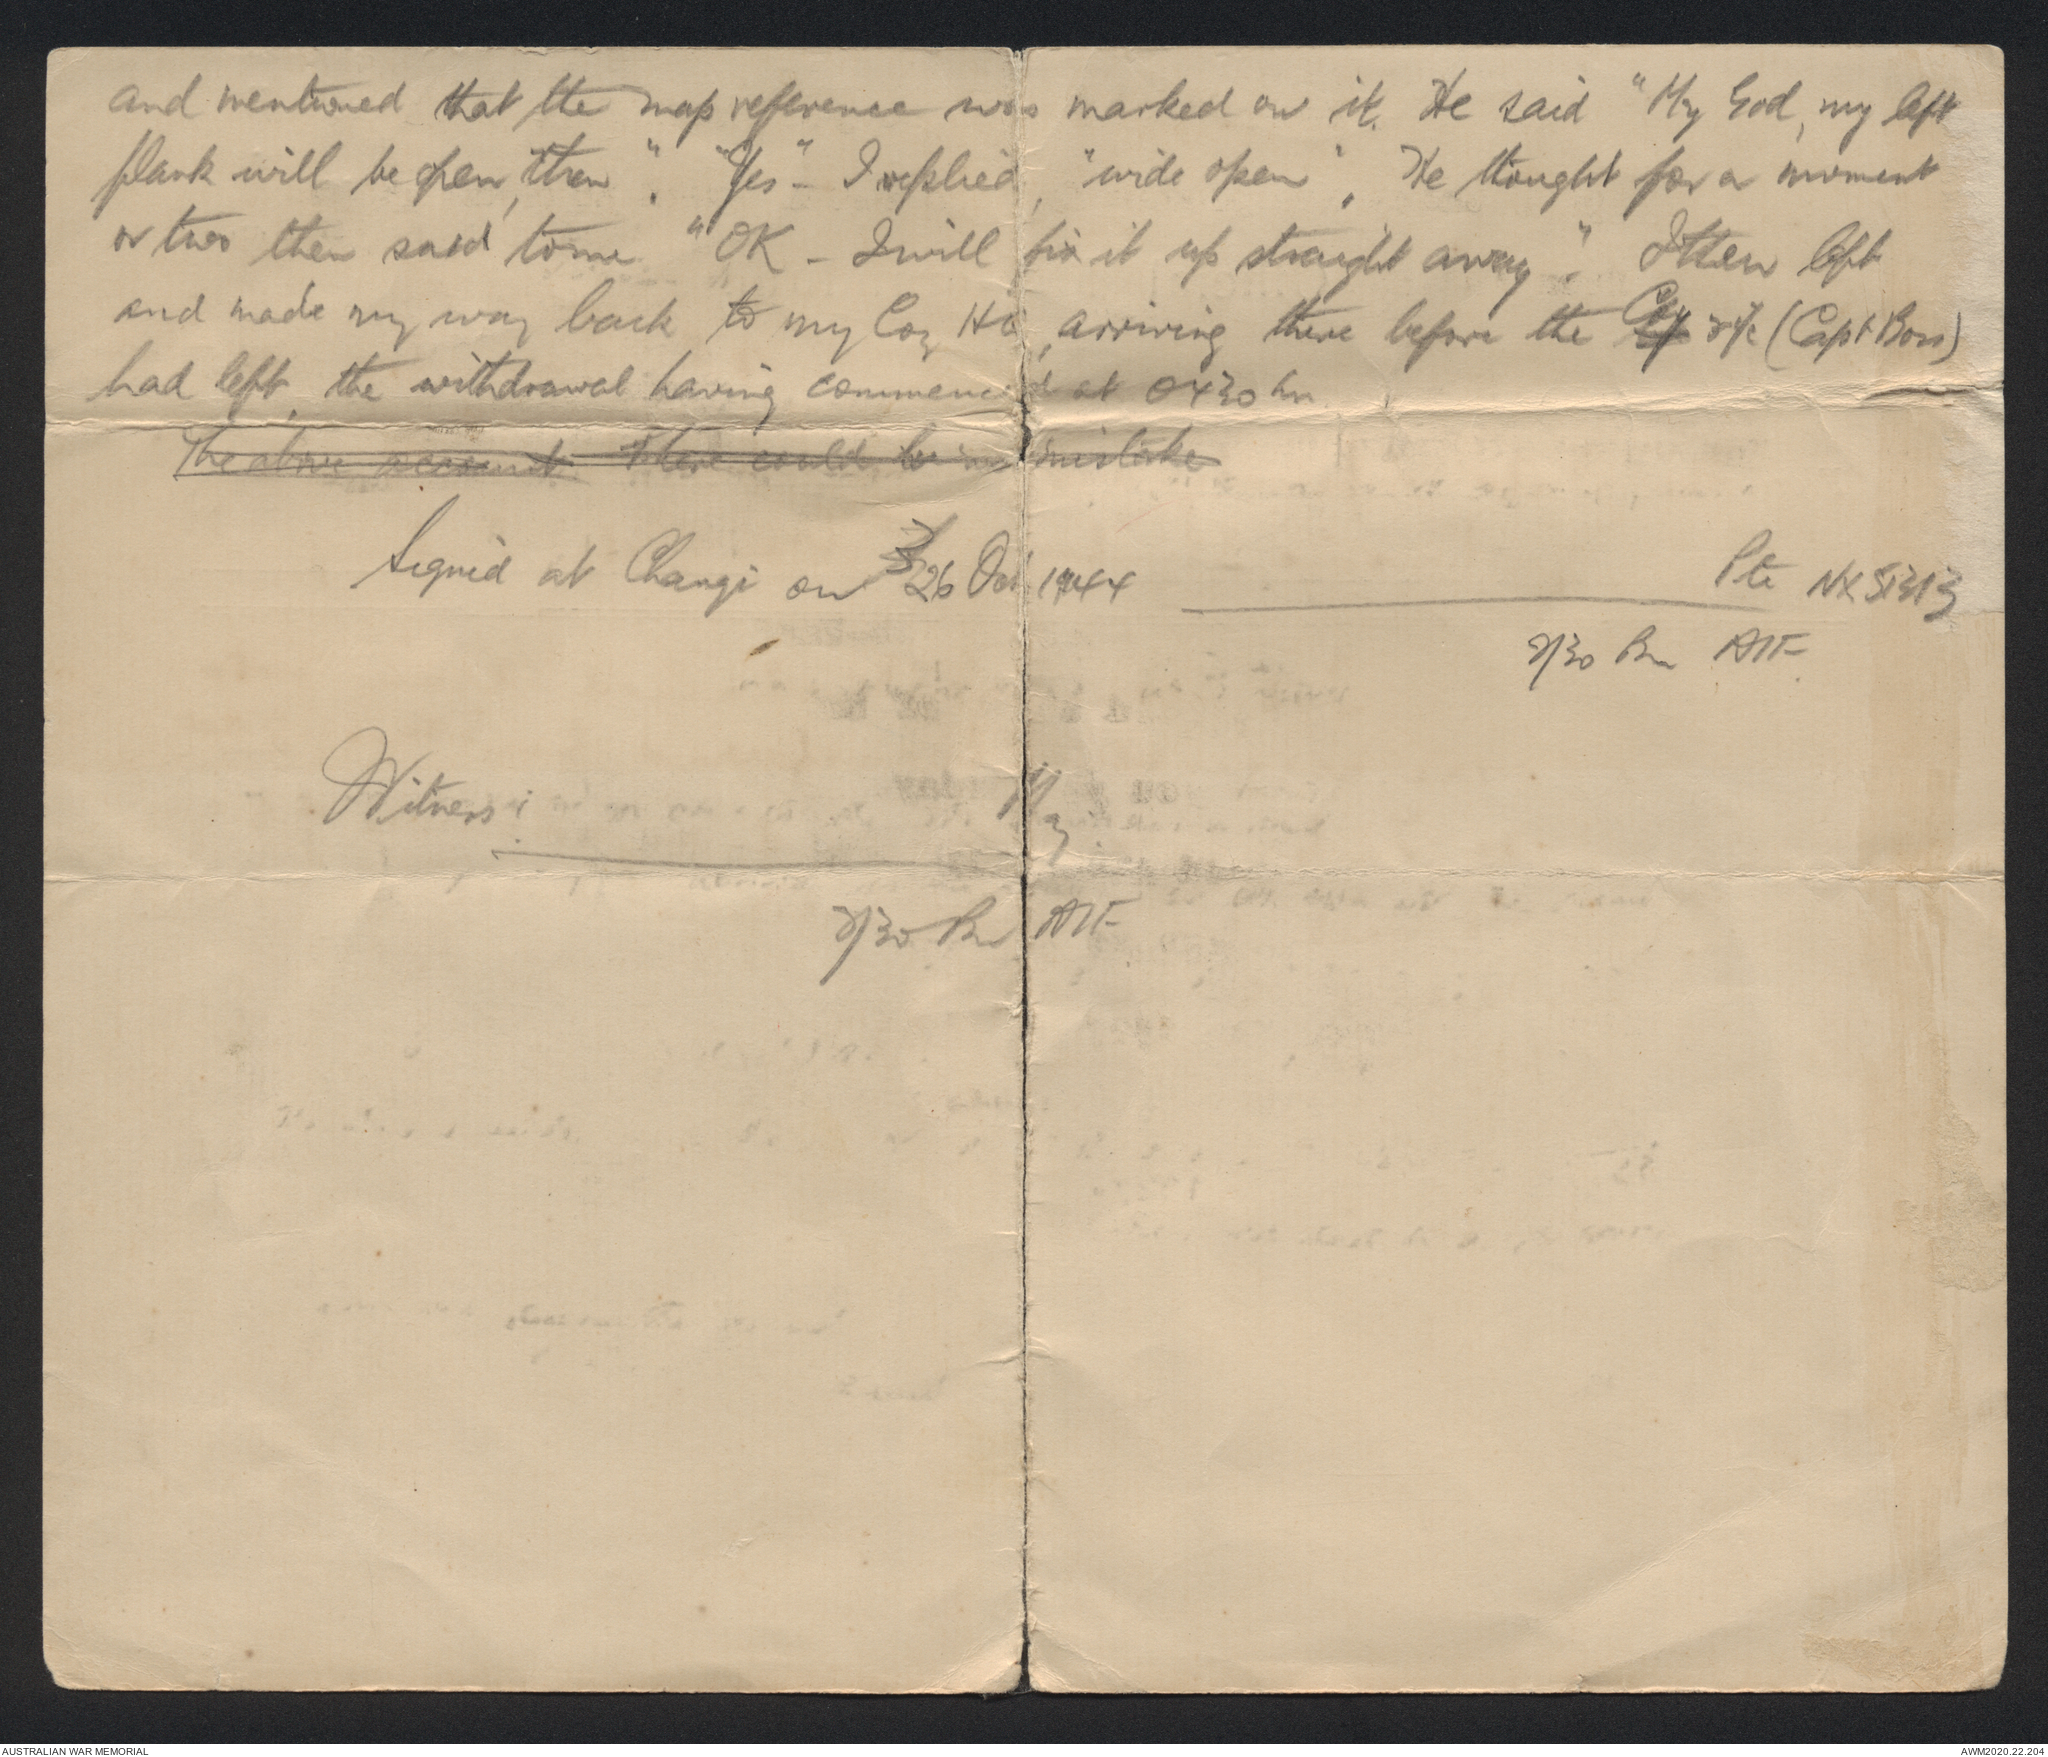 and mentioned that the map reference was marked on it. He said "My God, my left
flank will be open, then". "Yes" - I replied, "wide open". He thought for a moment
or two then said to me "OK - I will fix it up straight away". I then left
and made my way back to my Coy HQ, arriving there before the Coy 2/c (Capt Boss)
had left, the withdrawal having commenced at 0430 hrs.
The above account There could be no mistake
Signed at Changi on 26 Oct 1944
Pte NX 51313
2/30 Bn AIF.
Witness:
2/30 Bn AIF
AUSTRALIAN WAR MEMORIAL
AWM2020.22.204